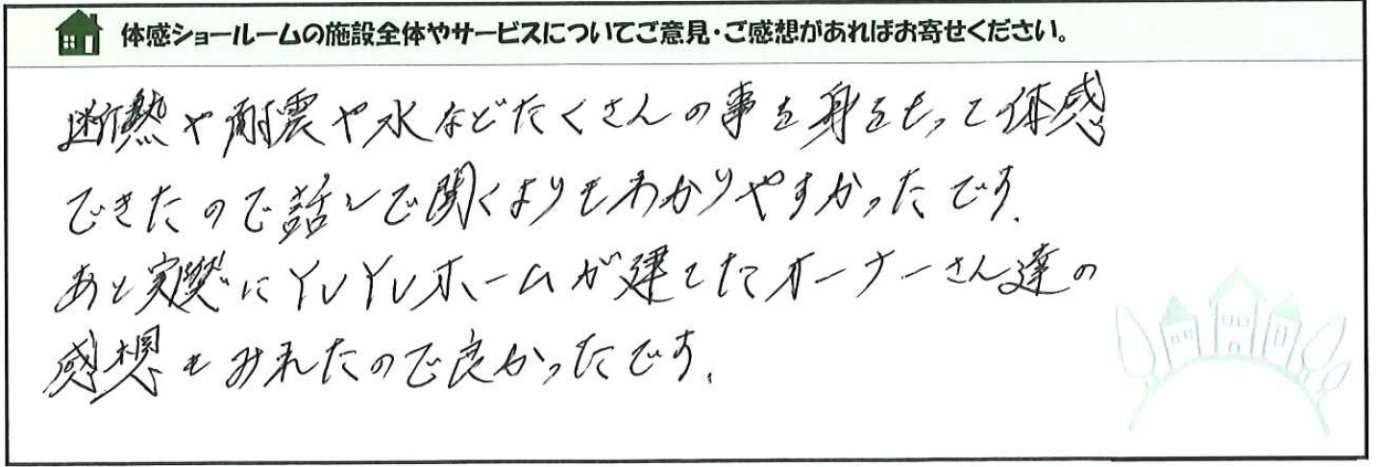 体感ショールームの施設全体やサービスについてご意見・ご感想があればお寄せください。
断熱や耐震や水などたくさんの事を身をもって体感
できたので話しで聞くよりもわかりやすかったです.
あと実際にYUYUホームが建てたオーナーさん達の
感想もみれたので良かったです.